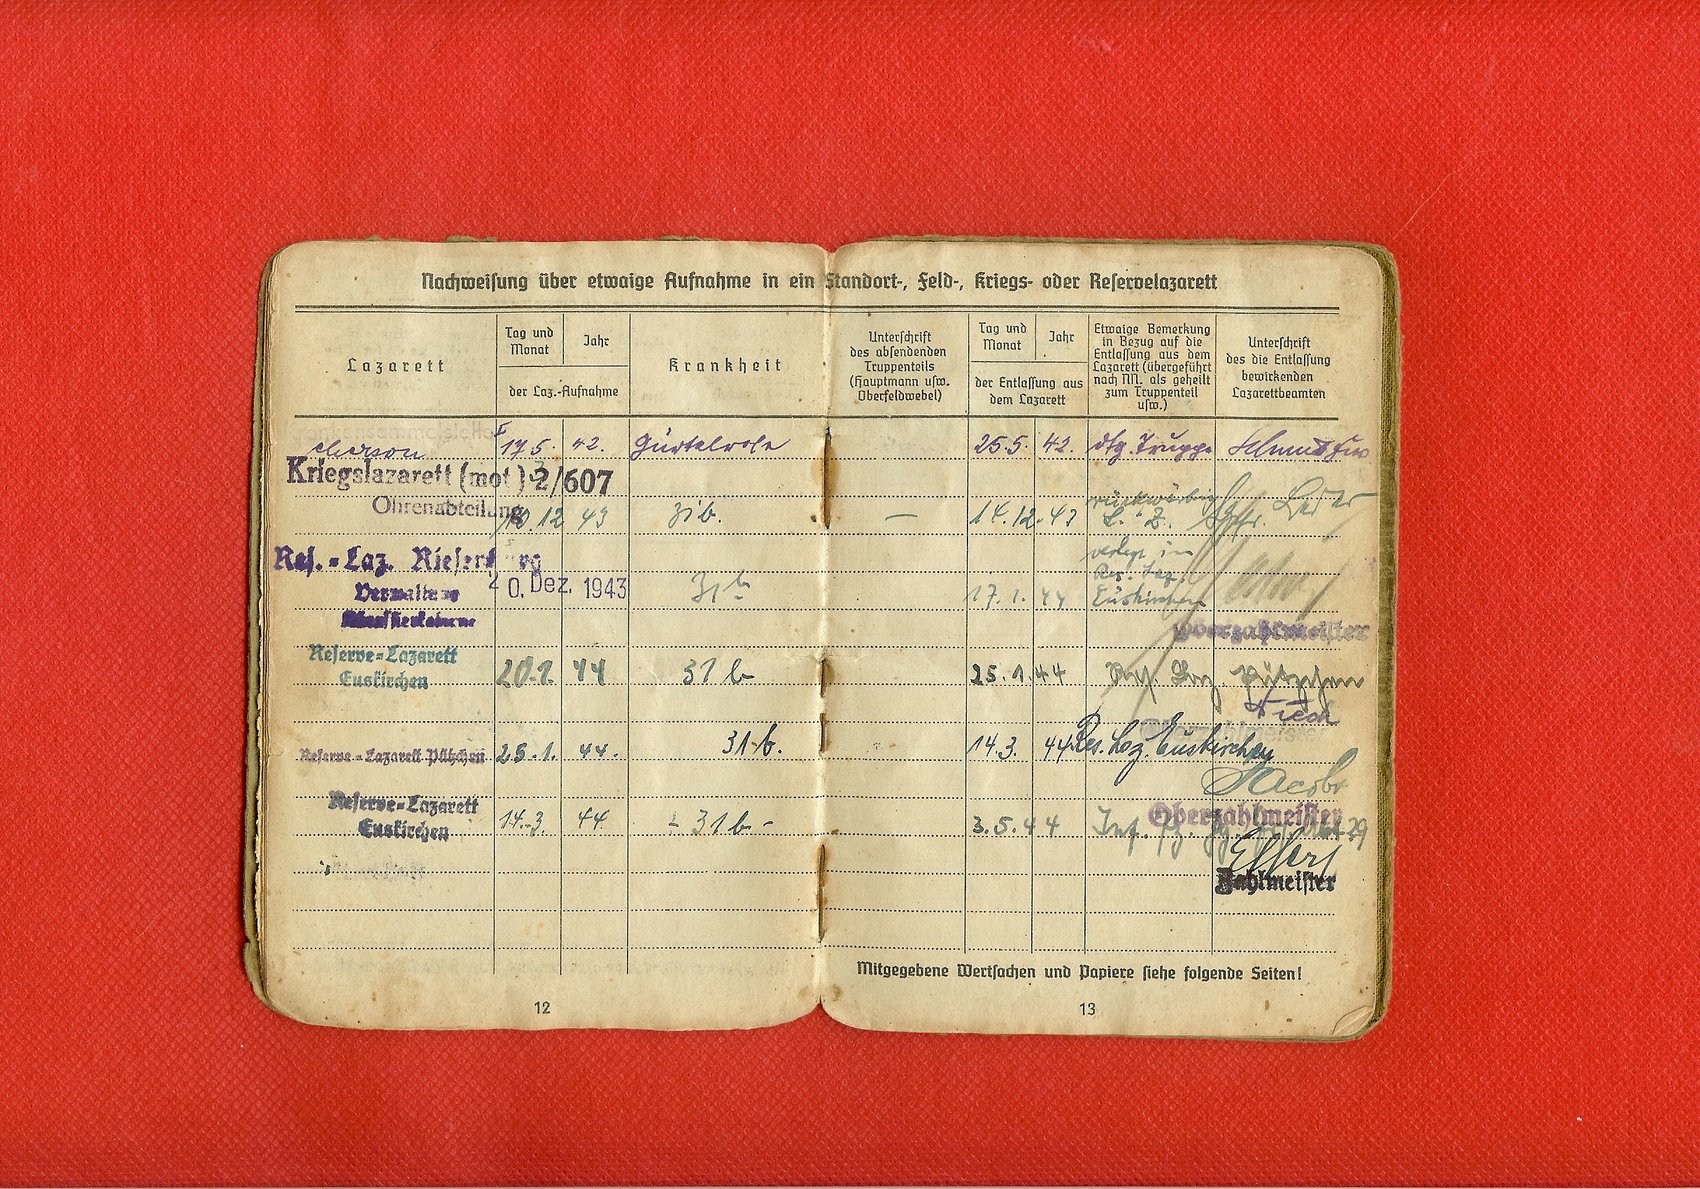 Nachweisung über etwaige Aufnahme in ein Standort-, Feld-, Kriegs- oder Reservelazarett
Lazarett
Tag und Monat
Jahr
der Laz.-Aufnahme
Krankheit
Unterschrift
des absendenden
Truppenteils
(Hauptmann usw.
Oberfeldwebel)
Tag und Monat
Jahr
der Entlassung aus
dem Lazarett
Etwaige Bemerkung
in Bezug auf die
Entlassung aus dem
Lazarett (übergeführt
nach NN. als geheilt
zum Truppenteil
usw.)
Unterschrift
des die Entlassung
bewirkenden
Lazarettbeamten
Cherson 17.5. 42. Gürtelrose 25.5. 42. Truppe
Kriegslazarett (mot) 2/607
Ohrenabteilung 10 12 43 31b. — 14.12. 43 rückwärtig
L. Z.
Res.-Laz. Riesenburg 20. Dez. 1943 31b 17.1. 44 verlegt in
Res. Laz.
Euskirchen
Oberzahlmeister
Reserve-Lazarett
Euskirchen 20.1. 44 31b 25.1. 44 Res. Laz. Pützchen
Reserve-Lazarett Pützchen 25.1. 44. 31b. 14.3. 44 Res. Laz. Euskirchen
Jacobs
Oberzahlmeister
Reserve-Lazarett
Euskirchen 14.3. 44 - 31b - 3.5.44
Zahlmeister
Mitgegebene Wertsachen und Papiere siehe folgende Seiten!
12
13